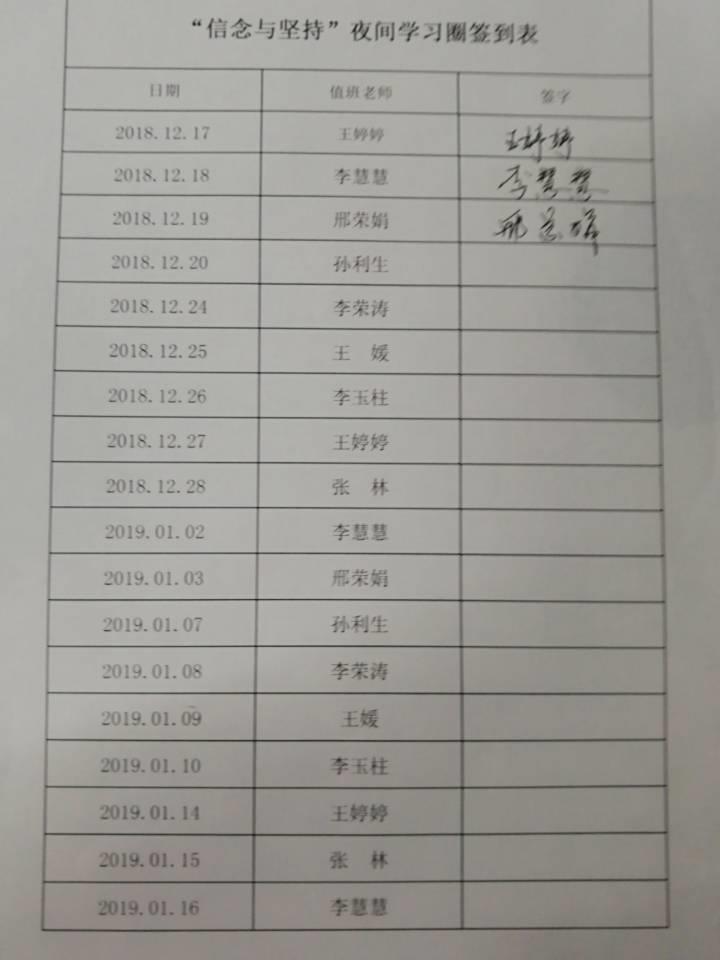 “信念与坚持”夜间学习圈签到表
日期 值班老师 签字
2018.12.17 王婷婷 王婷婷
2018.12.18 李慧慧 李慧慧
2018.12.19 邢荣娟 邢荣娟
2018.12.20 孙利生
2018.12.24 李荣涛
2018.12.25 王 媛
2018.12.26 李玉柱
2018.12.27 王婷婷
2018.12.28 张 林
2019.01.02 李慧慧
2019.01.03 邢荣娟
2019.01.07 孙利生
2019.01.08 李荣涛
2019.01.09 王媛
2019.01.10 李玉柱
2019.01.14 王婷婷
2019.01.15 张 林
2019.01.16 李慧慧